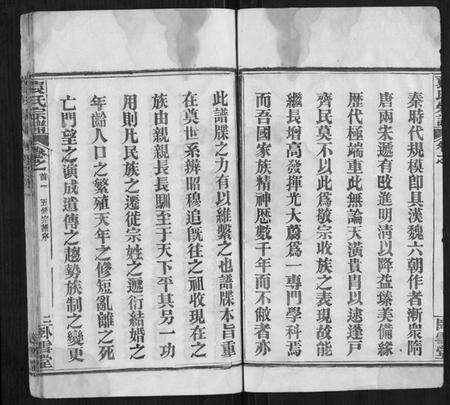 秦時代規模即具漢魏六朝作者漸衆隋
唐兩宋遞有改進明清以降益臻美備緣
歷代極端重此無論天潢貴胄以逮蓬戶
齊民莫不以此爲敬宗收族之表現故能
繼長增高發揮光大蔚爲一專門學科焉
而吾國家族精神歷數千年而不敝者亦
此譜牒之力有以維繫之也譜牒本旨重
在奠世系辨昭穆追旣往之祖收現在之
族由親親長長馴至于天下平其另一功
用則凡民族之遷徙宗姓之遞衍結婚之
年齡人口之繁殖天年之修短亂離之死
亡門望之演成遺傳之趨勢族制之變更
袁氏宗譜
卷之一
首一
三
臥雪堂